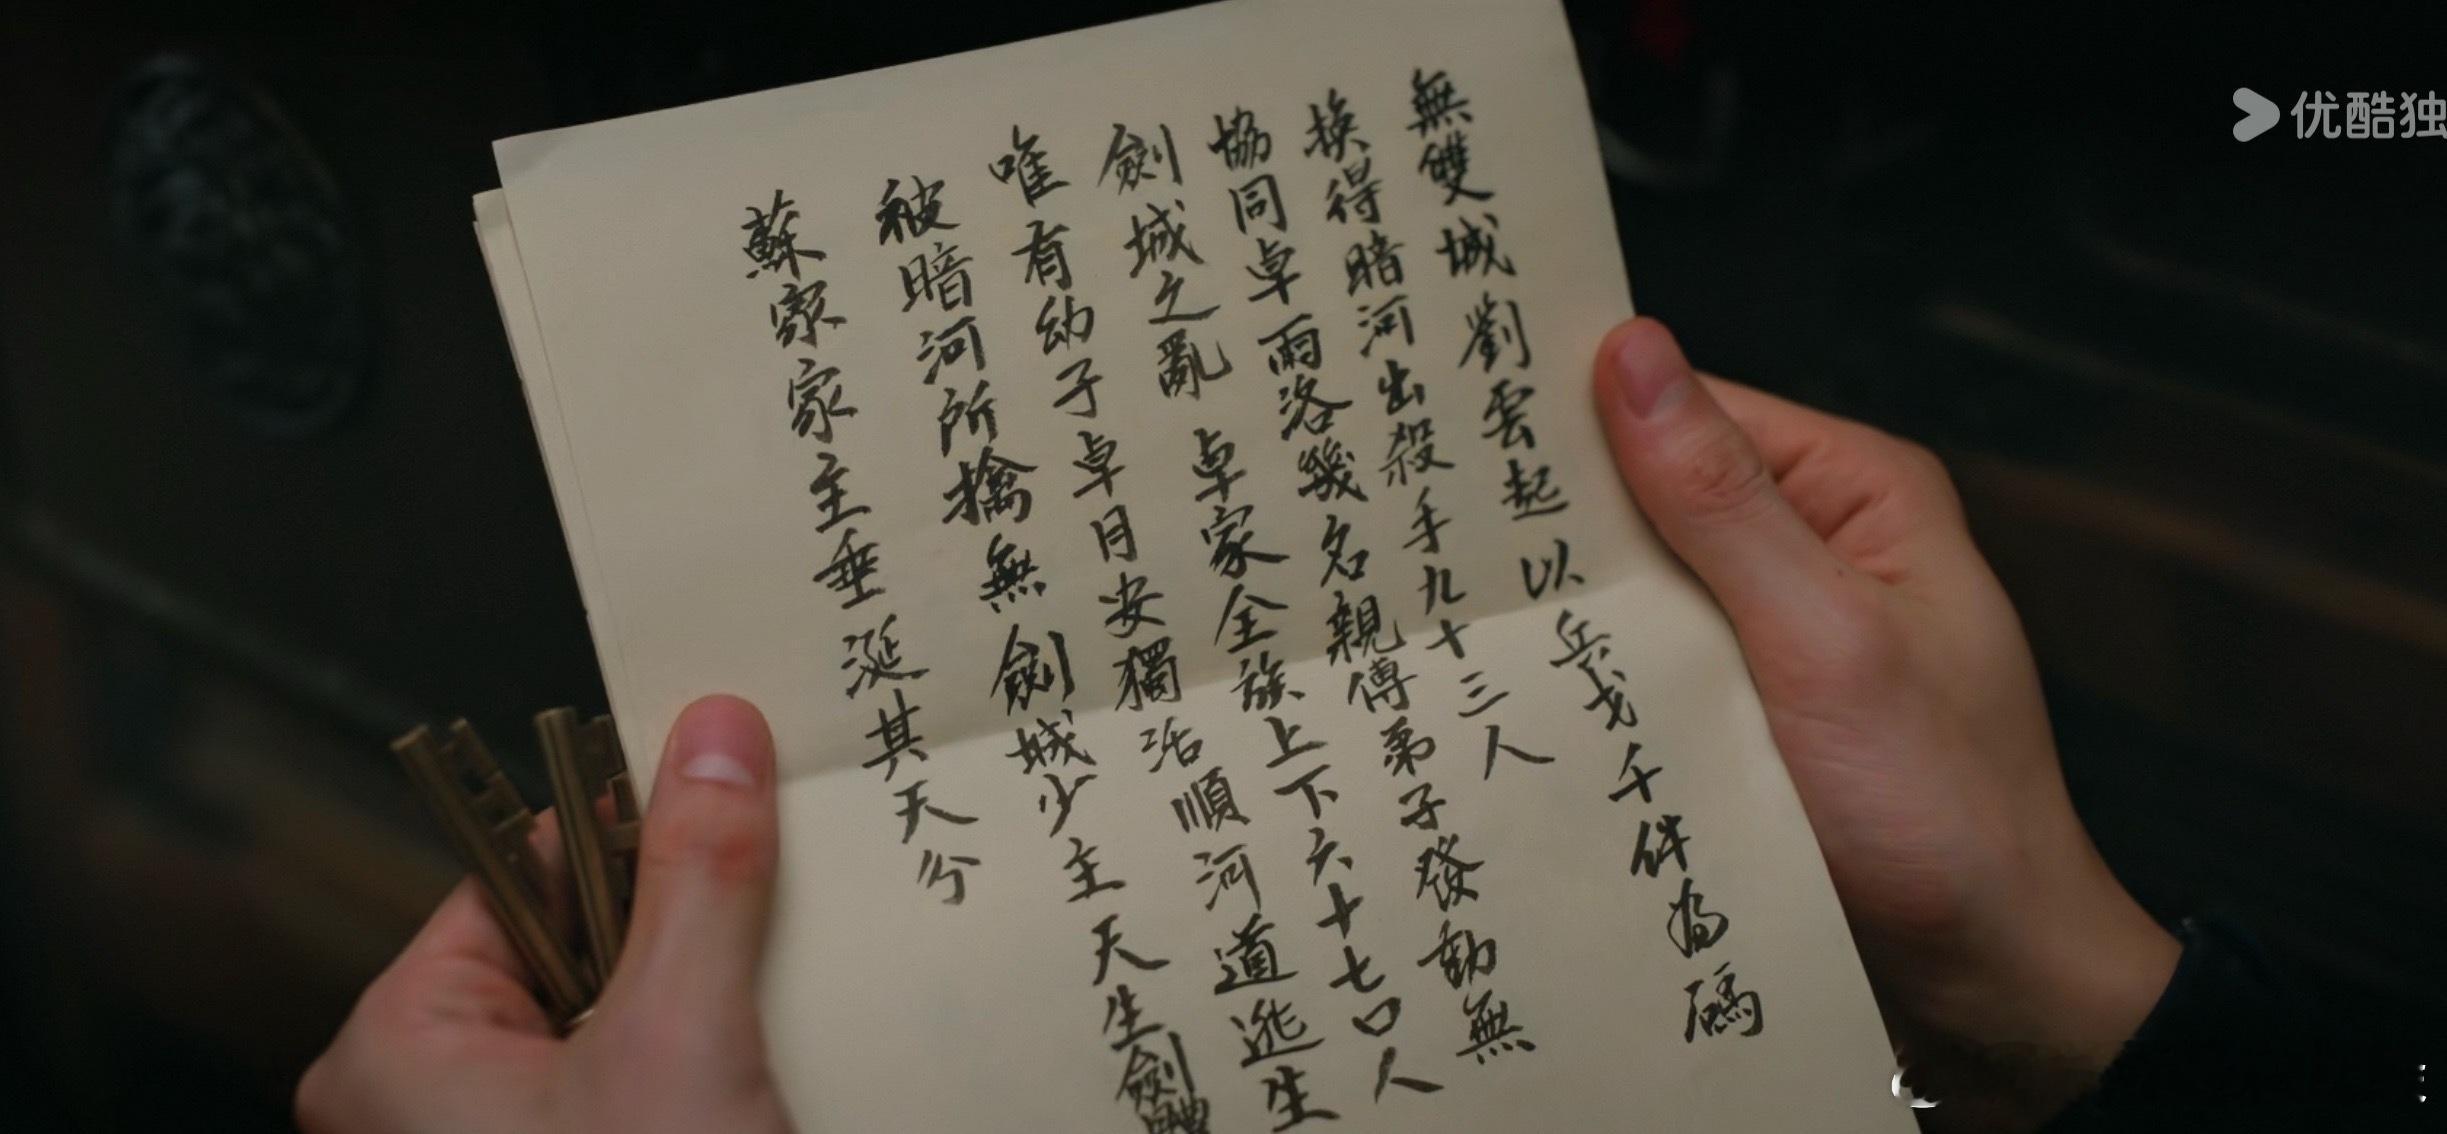 無雙城劉雲起以兵戈千件為碼
換得暗河出殺手九十三人
協同卓雨洛幾名親傳弟子發動無
劍城之亂 卓家全族上下六十七口人
唯有幼子卓月安獨活順河道逃生
被暗河所擒無劍城少主天生劍體
蘇家家主垂涎其天分
优酷独